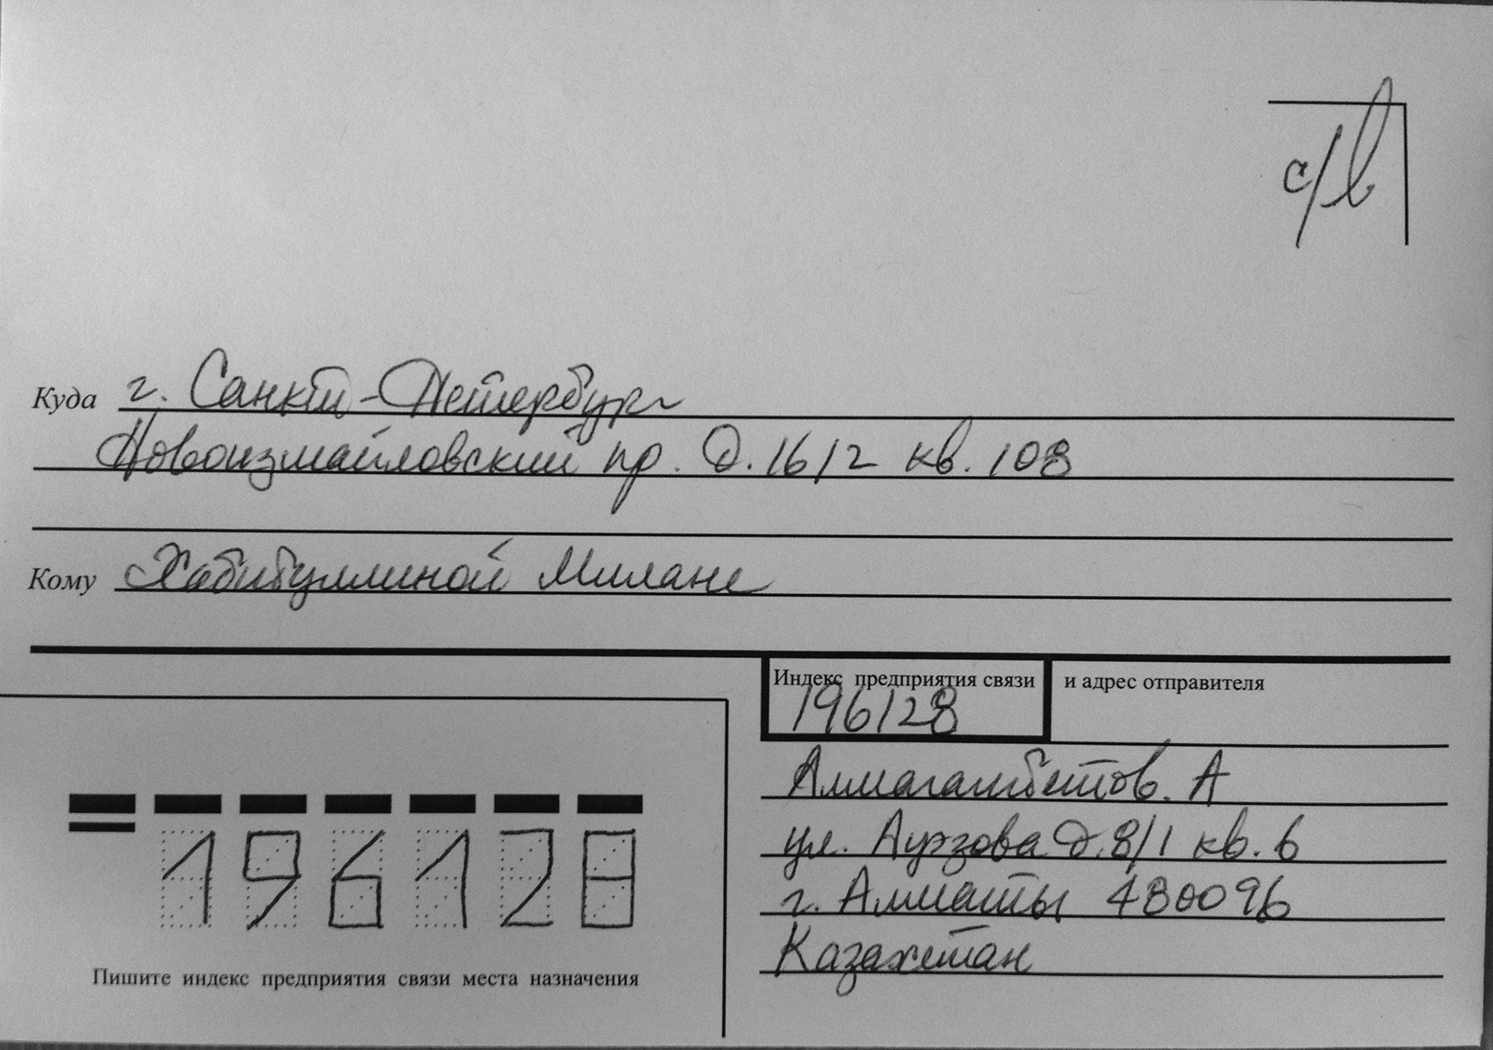 с/в
Куда г. Санкт-Петербург
Новоизмайловский пр. д. 16/2 кв. 108
Кому Хабибуллиной Милане
Индекс предприятия связи и адрес отправителя
196128
Алмагамбетов. А
ул. Ауэзова д. 8/1 кв. 6
г. Алматы 480096
Казахстан
196128
Пишите индекс предприятия связи места назначения